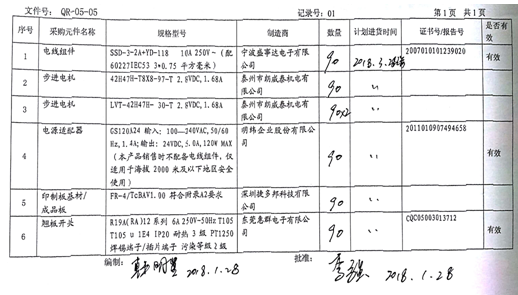 文件号: QR-05-05 记录号: 01 第1页 共1页
序号 采购元件名称 规格型号 制造商 数量 计划进货时间 证书号/报告号 是否有效
1 电线组件 SSD-3-2A+YD-118 10A 250V~(配60227IEC53 3*0.75 平方毫米) 宁波盛事达电子有限公司 90 2018.3. 2007010101239020 有效
2 步进电机 42H47H-T8X8-97-T 2.8VDC,1.68A 泰州市朗威泰机电有限公司 90 〃 有效
3 步进电机 LVT-42H47H- 30-T 2.8VDC,1.68A 泰州市朗威泰机电有限公司 90x2 〃 有效
4 电源适配器 GS120A24 输入: 100—240VAC,50/60Hz,1.4A;输出: 24VDC,5.0A,120W MAX (本产品销售时不配备电线组件, 仅适用于海拔 2000 米及以下地区安全使用) 明纬企业股份有限公司 90 〃 2011010907494658 有效
5 印制板基材/成品板 FR-4/TcBAV1.00 符合附录A2要求 深圳捷多邦科技有限公司 90 〃
6 翘板开关 R19A(RA)12 系列 6A 250V~50Hz T105 T105 u 1E4 IP20 耐热 3 级 PT1250 焊锡端子/插片端子 污染等级2级 东莞惠群电子有限公司 90 〃 CQC05003013712 有效
编制: 2018.1.28 批准: 2018.1.28